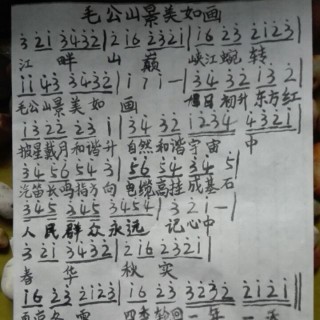 毛公山景美如画
3 2 1 3 4 3 2 | 2 1 6 2 3 2 1 | 1 6 2 3 2 1 2 3
江 畔 山 巅 峡江蜿 转
1 1 4 3 3 4 3 2 | 1 7 1 — | 3 4 3 2 1 3 2
毛公山景美如 画 旭日初升 东方红
1 3 2 2 2 3 1 | 3 4 3 2 | 1 2 3 4 4 2
披星戴月和谐升 自然和谐宇宙 中
3 4 5 6 5 4 3 | 5 6 5 4 3 4 5
汽笛长鸣指方向 电缆高挂成基石
3 4 5 3 4 5 3 4 5 4 | 3 2 1 — |
人民群众永远 记心中
3 2 1 3 4 3 2 | 2 1 6 2 3 2 1 |
春 华 秋 实
1 6 2 3 2 1 2 3 | 1 6 2 3 3 2 3 2 2 1 2 1
四季轮回一年